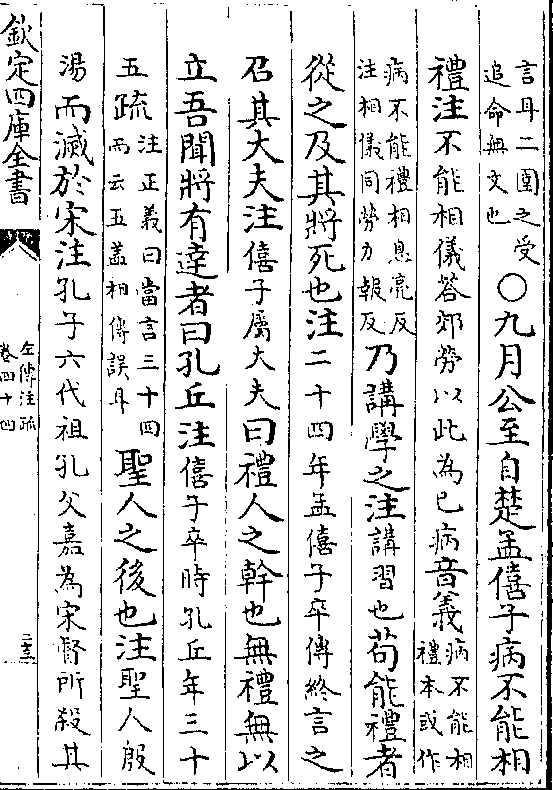 言耳二圍之受
追命無文也
〇九月公至自楚孟僖子病不能相
禮注不能相儀答郊勞以此為已病音義
病不能相
禮本或作
病不能禮相息亮反
注相儀同勞力報反
乃講學之注講習也苟能禮者
從之及其將死也注二十四年孟僖子卒傳終言之
召其大夫注僖子屬大夫曰禮人之幹也無禮無以
立吾聞將有達者曰孔丘注僖子卒時孔丘年三十
五疏
注正義曰當言三十四
而云五蓋相傳誤耳
聖人之後也注聖人殷
湯而滅於宋注孔子六代祖孔父嘉為宋督所殺其
欽定四庫全書
左傳注疏
卷四十四